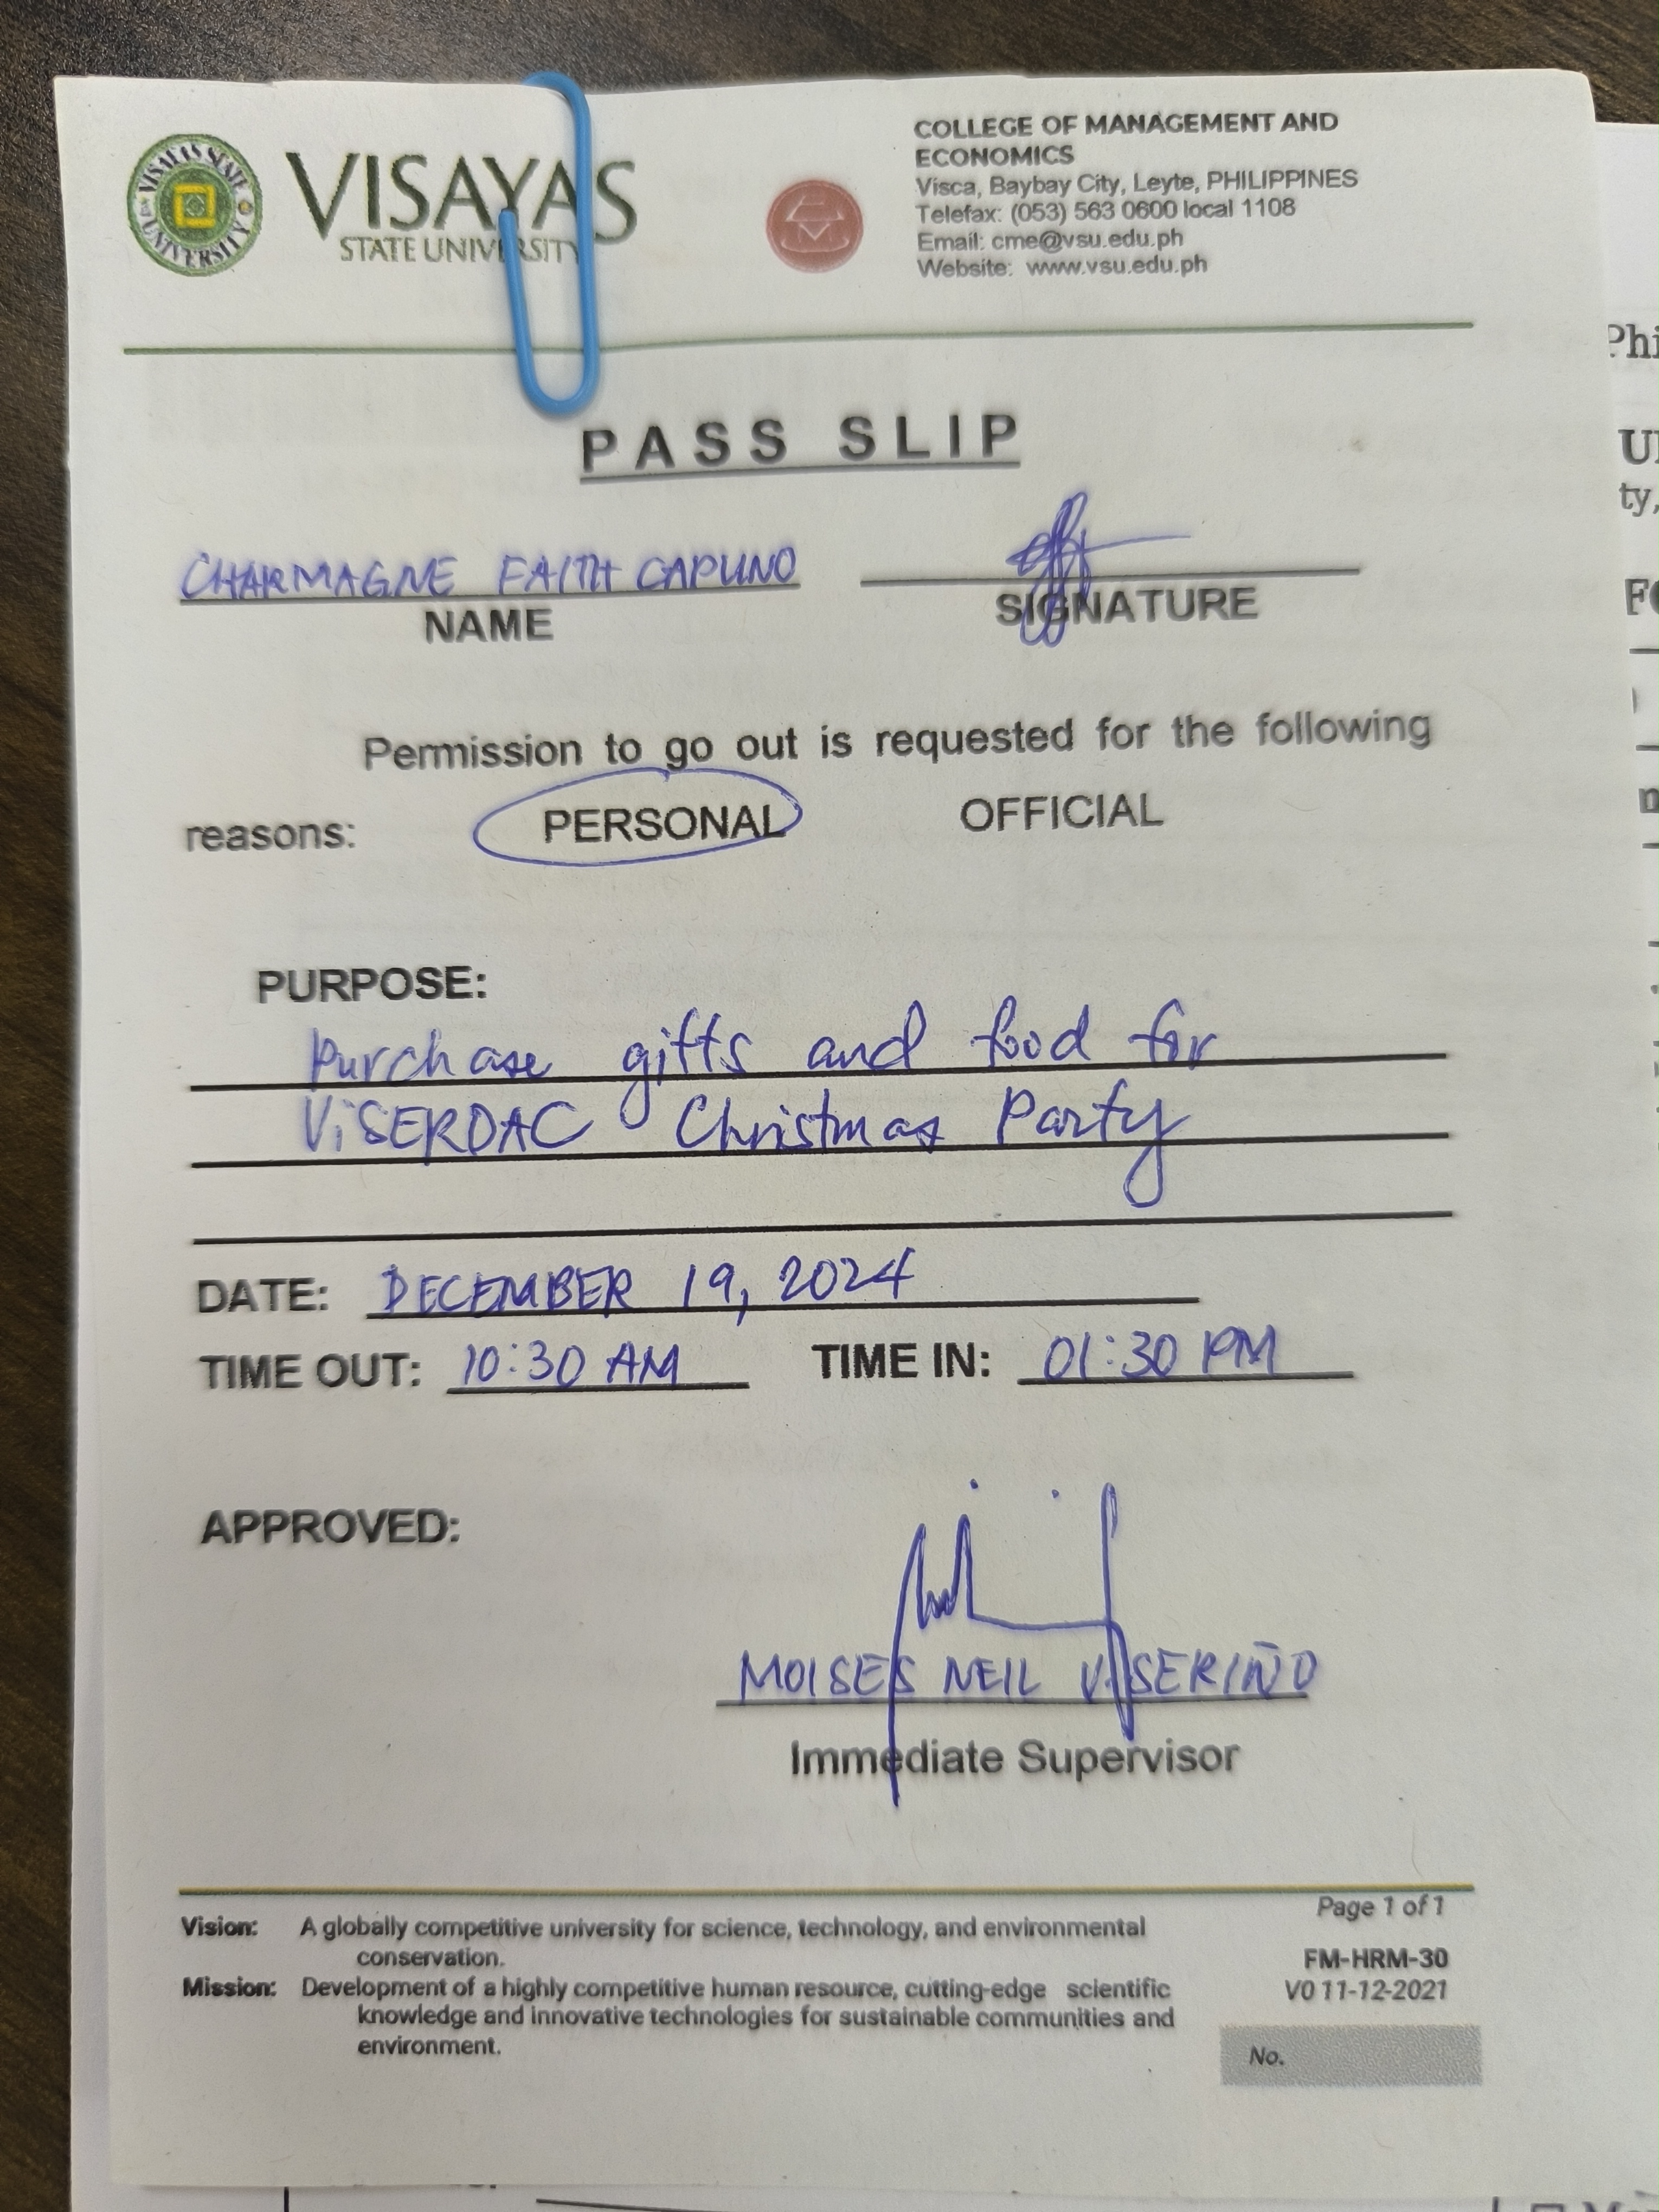 VISAYAS STATE UNIVERSITY
VISAYAS
STATE UNIVERSITY
COLLEGE OF MANAGEMENT AND
ECONOMICS
Visca, Baybay City, Leyte, PHILIPPINES
Telefax: (053) 563 0600 local 1108
Email: cme@vsu.edu.ph
Website: www.vsu.edu.ph
PASS SLIP
CHARMAGNE FAITH CAPUNO
NAME
SIGNATURE
Permission to go out is requested for the following
reasons: PERSONAL OFFICIAL
PURPOSE:
Purchase gifts and food for
ViSERDAC Christmas Party
DATE: DECEMBER 19, 2024
TIME OUT: 10:30 AM TIME IN: 01:30 PM
APPROVED:
MOISES NEIL V. SERIÑO
Immediate Supervisor
Page 1 of 1
Vision: A globally competitive university for science, technology, and environmental
conservation.
FM-HRM-30
Mission: Development of a highly competitive human resource, cutting-edge scientific
V0 11-12-2021
knowledge and innovative technologies for sustainable communities and
environment.
No.
Phi
ty,